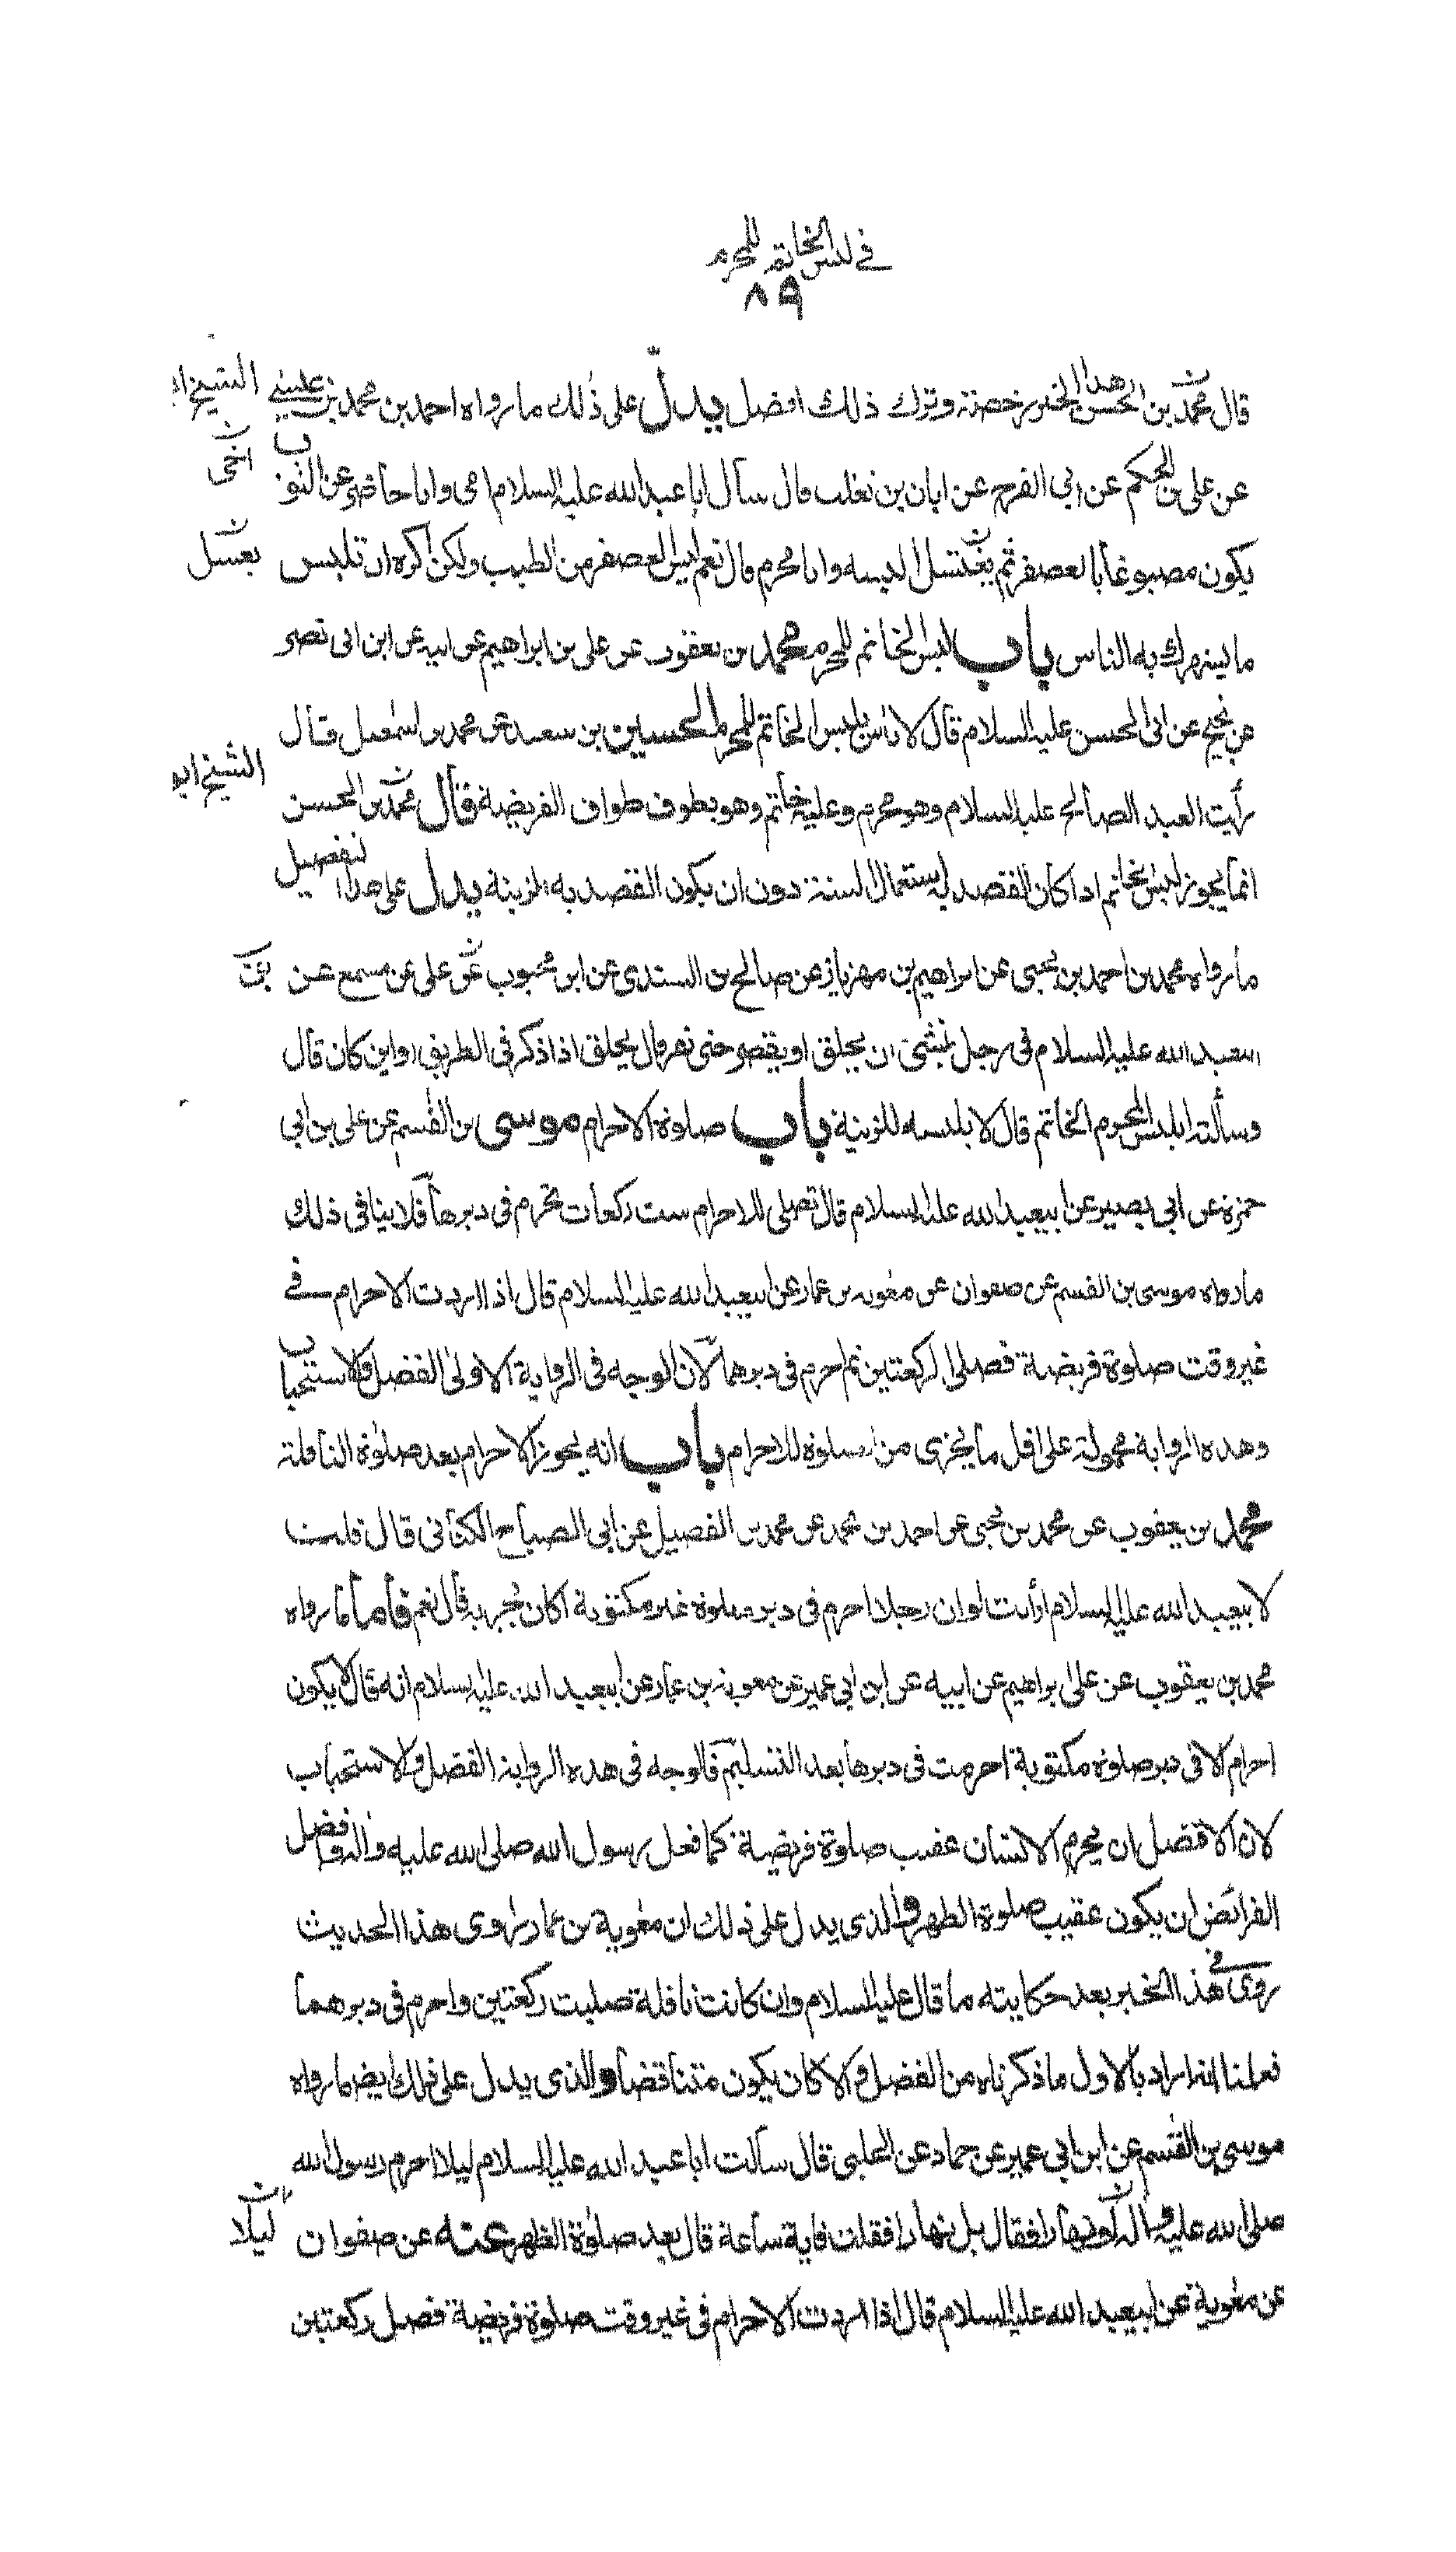 في لبس الخاتم للمحرم
٨٩
قال محمد بن الحسن هذا الخبر رخصة وترك ذلك افضل يدل على ذلك ما رواه احمد بن محمد بن عيسى
عن علي بن الحكم عن ابي الفرج عن ابان بن تغلب قال سأل ابا عبد الله عليه السلام اخي وانا حاضر عن الثوب
اخى
يكون مصبوغا بالعصفر ثم يغتسل البسه وانا محرم قال نعم ليس العصفر من الطيب ولكن اكره ان تلبس
يغسل
ما يشهرك به الناس باب لبس الخاتم للمحرم محمد بن يعقوب عن علي بن ابراهيم عن ابيه عن ابن ابي نصر
عن نجيح عن ابى الحسن عليه السلام قال لا باس بلبس الخاتم للمحرم الحسين بن سعيد عن محمد بن اسمعيل قال
رأيت العبد الصالح عليه السلام وهو محرم وعليه خاتم وهو يطوف طواف الفريضة قال محمد بن الحسن
الشيخ ابو
انما يجوز لبس الخاتم اذا كان القصد به استعمال السنة دون ان يكون القصد به الزينة يدل على هذا التفصيل
ما رواه محمد بن احمد بن يحيى عن ابراهيم بن مهزيار عن صالح بن السندي عن ابن محبوب عن علي عن مسمع عن
بن
ابيعبد الله عليه السلام فى رجل نسي ان يحلق او يقصر حتى نفر قال يحلق اذا ذكر في الطريق او اين كان قال
وسألته ايلبس المحرم الخاتم قال لا يلبسه للزينة باب صلوة الاحرام موسى بن القسم عن علي بن ابي
حمزة عن ابي بصير عن ابيعبد الله عليه السلام قال تصلى للاحرام ست ركعات تحرم فى دبرها فلا ينافى ذلك
ما رواه موسى بن القسم عن صفوان عن معوية بن عمار عن ابيعبد الله عليه السلام قال اذا اردت الاحرام في
غير وقت صلوة فريضة فصل ركعتين ثم احرم فى دبرهما لان الوجه فى الرواية الاولى الفضل والاستحباب
وهذه الرواية محمولة على اقل ما يجزى من الصلوة للاحرام باب انه يجوز الاحرام بعد صلوة النافلة
محمد بن يعقوب عن محمد بن يحيى عن احمد بن محمد عن محمد بن الفضيل عن ابي الصباح الكناني قال قلت
لابيعبد الله عليه السلام أرأيت لو ان رجلا احرم فى دبر صلوة غير مكتوبة اكان يجزيه قال نعم فأما ما رواه
محمد بن يعقوب عن علي بن ابراهيم عن ابيه عن ابن ابي عمير عن معوية بن عمار عن ابيعبد الله عليه السلام انه قال لا يكون
احرام الا فى دبر صلوة مكتوبة احرمت فى دبرها بعد التسليم فالوجه فى هذه الرواية الفضل والاستحباب
لان الافضل ان يحرم الانسان عقيب صلوة فريضة كما فعل رسول الله صلى الله عليه وآله وافضل
الفرائض ان يكون عقيب صلوة الظهر والذى يدل على ذلك ان معوية بن عمار راوى هذا الحديث
روى فى هذا الخبر بعد حكايته ما قال عليه السلام وان كانت نافلة صليت ركعتين واحرم فى دبرهما
فعلمنا انه اراد بالاول ما ذكرناه من الفضل والا كان يكون متناقضا والذى يدل على ذلك ايضا ما رواه
موسى بن القسم عن ابن ابي عمير عن حماد عن الحلبى قال سألت ابا عبد الله عليه السلام ليلا احرم رسول الله
صلى الله عليه وآله او نهارا فقال بل نهارا فقلت فاية ساعة قال بعد صلوة الظهر عنه عن صفوان
ليلا
عن معوية عن ابيعبد الله عليه السلام قال اذا اردت الاحرام فى غير وقت صلوة فريضة فصل ركعتين